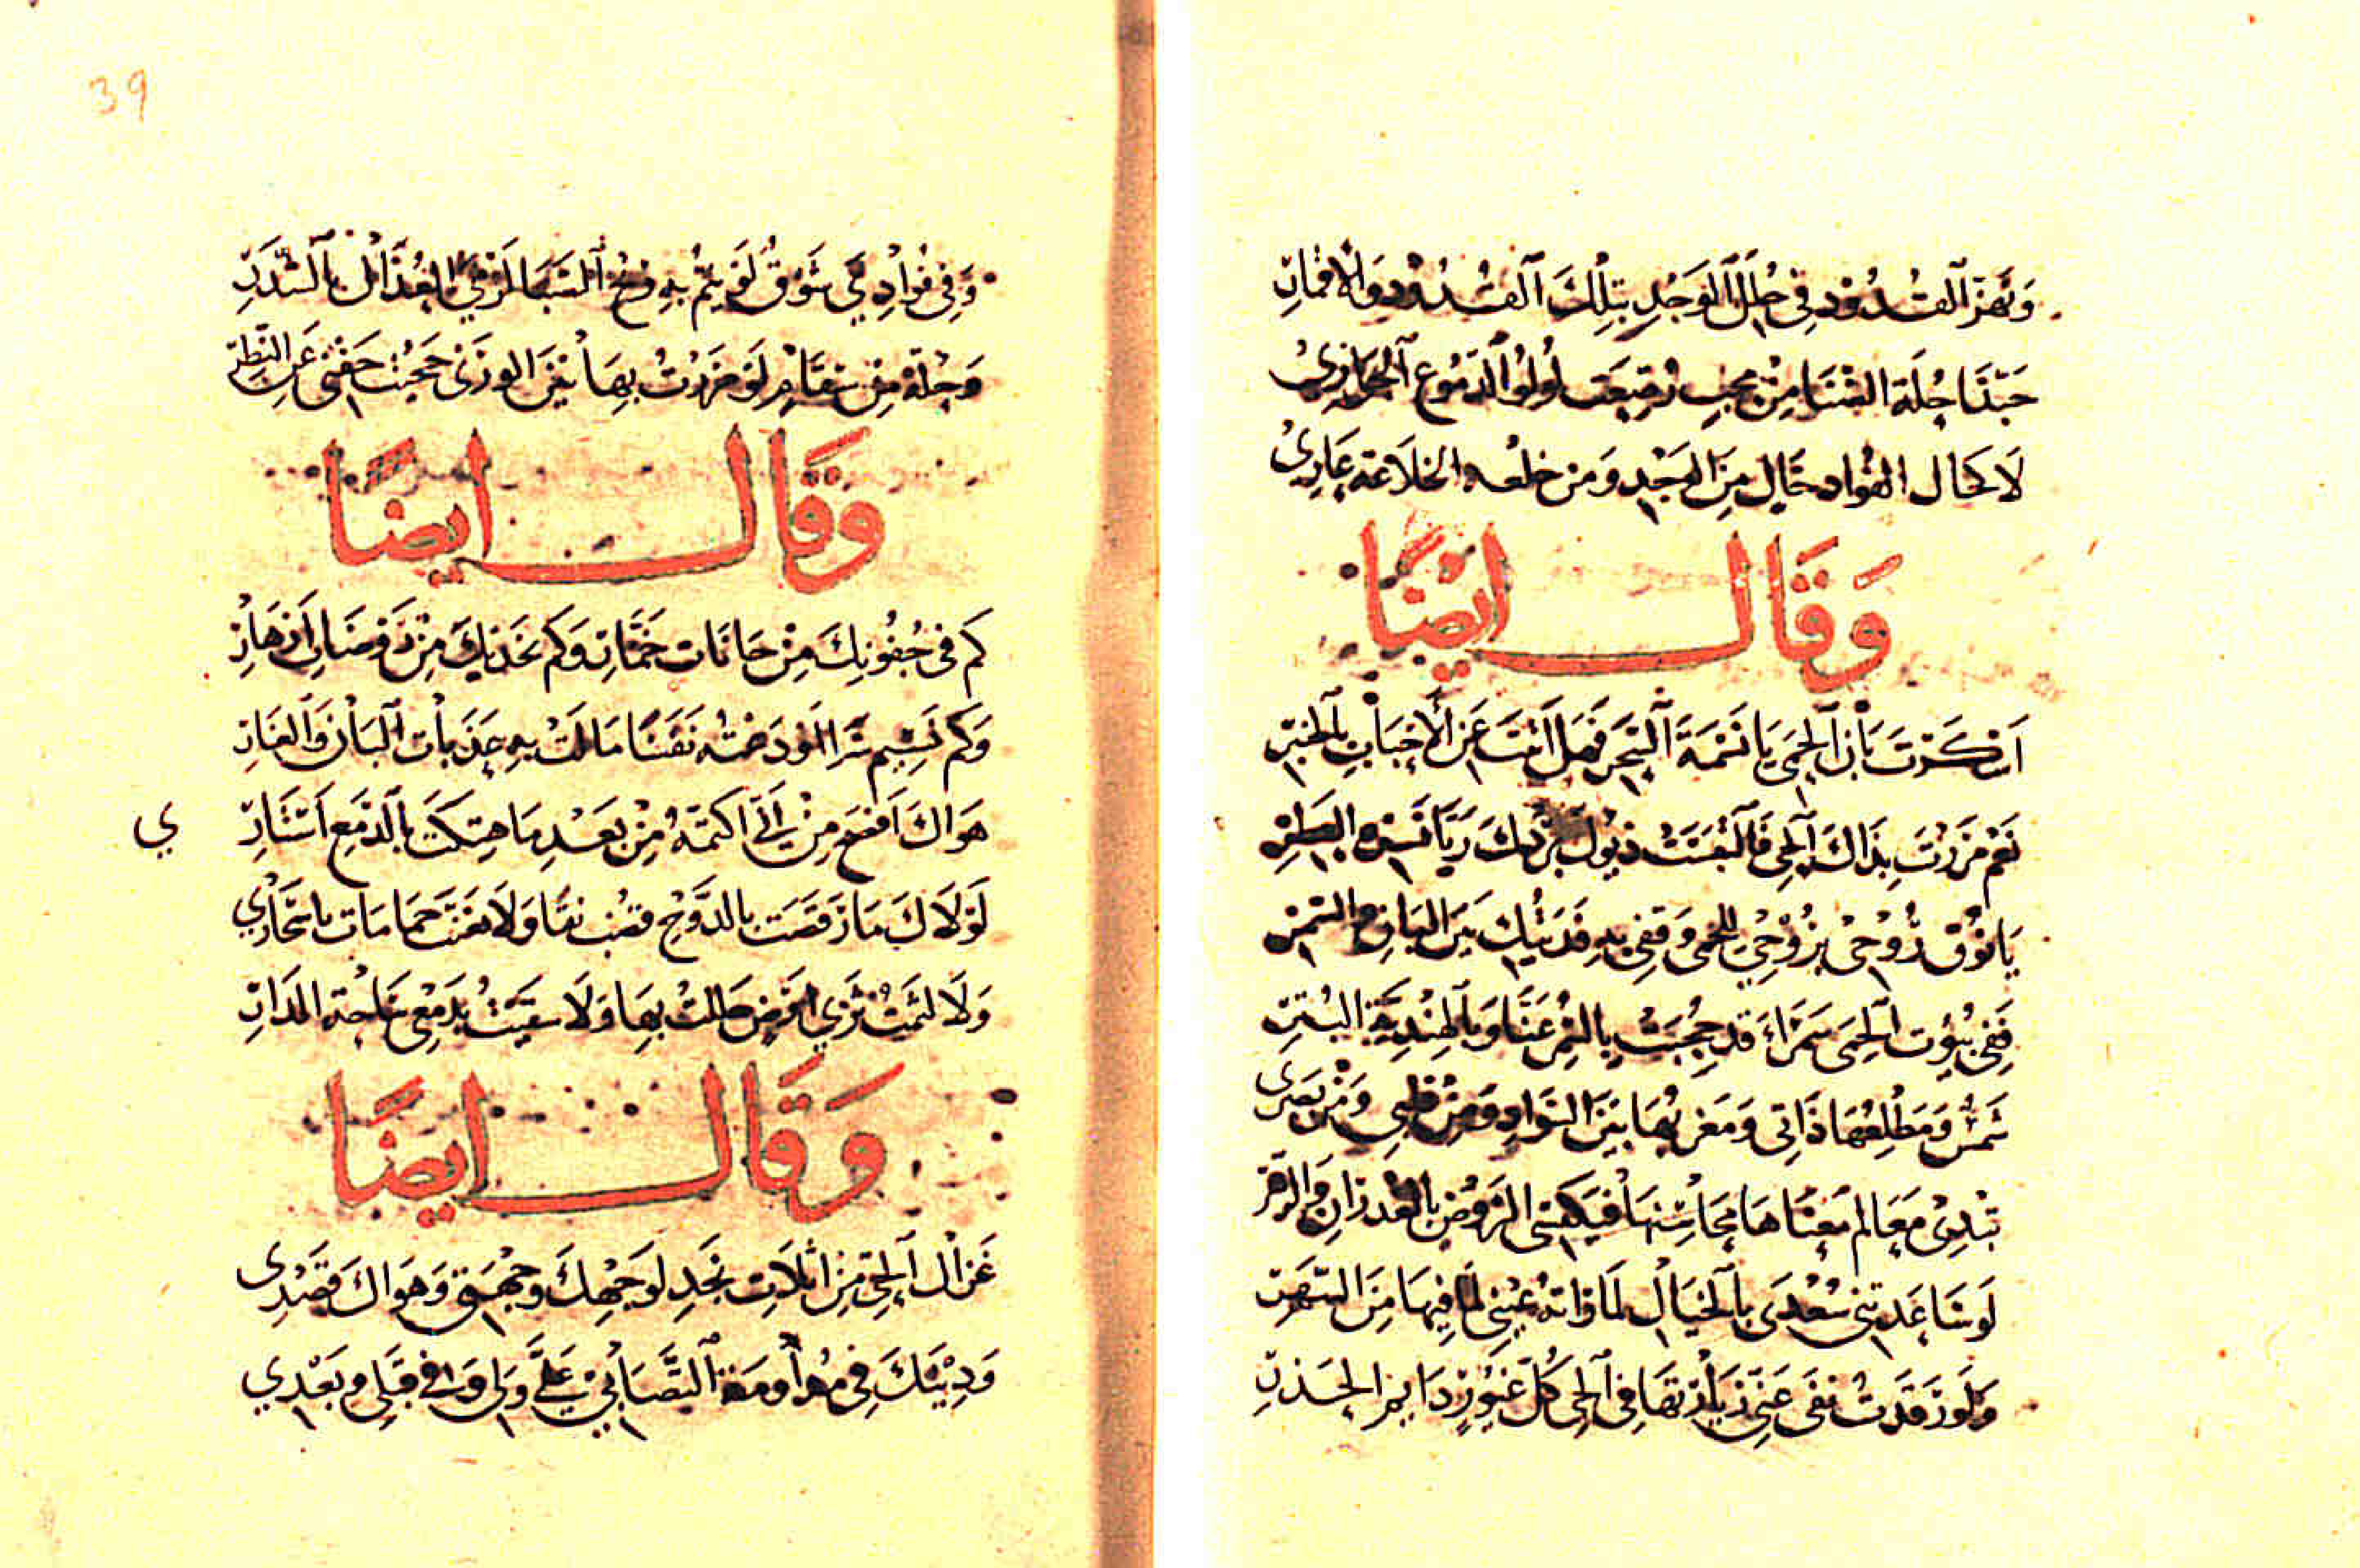 وَتَهَزّ القُدُوْد فِي حُلَلِ الوَجْدِ بِتِلْكَ القُدُوْدِ وَالاقْمَارِ
حَبّذَا حُلَة الضَنَا مِنْ مُحِبٍ رُصِّعَت لُولُو الدّمُوع الجَوَارِيْ
لَا كَحَال الفُؤاد خَالٍ مِنَ الوَجْدِ وَمن خلعه الخلَاعَة عَارِيْ
وَقَال ايْضًا
اسْكَرْتَ بَانَ الحِمَى يَا نَسْمَةَ السَّحَر فَهَل اتَيْتَ عَن الأحْبَابِ بِالخَبَرِ
نَعَم مَرَرْتَ بِذَاكَ الحِي فَالتَبَسَتْ ذيُول بُرْدِك رَيّا نَشره العَطِرِ
يَا نُوْق رُوْحِيْ بِرُوْحِيْ للحمى وَقفِي بِهِ فَدَيْتُك بَيْن البَانِ وَالسَّمُرِ
فَفِي بُيُوْت الحِمَى سَمْرَاءَ قَد حُجِبَتْ بِالسُّمْرِ عَنّا وَبِالهِنْدِيّة البُتُرِ
شَمْسٌ وَمَطْلَعُهَا ذَاتِي وَمَغرِبُهَا بَيْنَ السَّوَادِ وَمِنْ قلبِي وَمْنْ بَصَرِى
تَبْدِىْ مَعَالم مَعْنَاهَا مَحَاسِنهَا فَيَكْتَسي الرَّوْضُ بالغُدْرَانِ وَالزَّهَرِ
لَو سَاعَدتنى سُعْدَى بِالخَيَالِ لَمَا وَاتَهُ عَيْنِي لِمَا فِيهَا مِنَ السَّهَرِ
وَلَوْ رَقَدَتُ نفَى عَنّي زيَارَتهَا فِي الحِي كُل غَيُورٍ دَايم الحَذَرِ
39
وَفِي فُؤادِيَ شَوْقٌ لَوْ يَتُمّ بِهِ رُحُّ الصَبَا لَرُمِي العُذَّال بِالشّرَرِ
وَحُلّة مِن سَقَامٍ لَو مَرَرْتُ بِهَا بَيْنَ الوَرَى حَجَبْت جفْنى عَنِ النّظَرِ
وَقَال ايضًا
كَم فِي جُفُوْنِكَ مِنْ حَانَات خَمَّارِ وَكَم بخَدّيْكَ مِنْ رَوْضَاتِ أَزهَارِ
وَكَم نَسِيْم سَرَا لَوْلَا خصُه نَفَسًا مَا مَالتْ بِهِ عَذَبات البَان وَالغَارِ
هَوَاكَ اَفصَح مِنْ اَنّي اكتمهُ مِنْ بَعْدِ مَا هتكَتْ بالدّمْعِ اَسْتَارِي
ي
لَوْلَاكَ مَا رَقَصَت بالدَّوْحِ قضُب نقا وَلَا تغَنّت حمامَات باسْحَارِي
وَلَا لثَمْتُ ثَرَي ارْض حَللتُ بِهَا وَلَا سقَيْتُ بِدَمْعِي سَاحَة الدَارِ
وَقَال ايضًا
غَزَال الحِيّ مِنْ اثلَاتِ نَجْدِ لوَجْهِكَ وجْهَتي وَهوَاكَ قَصْدِى
وَدِيْنكَ فِي مُدَاوَمَة التَّصَابِيْ عَلَيَّ وَلي وَفي قبْلِي وبَعْدِي